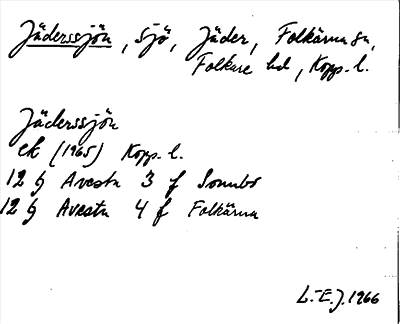 Jäderssjön, sjö, Jäder, Folkärna sn,
Folkare hd, Kopp. l.
Jäderssjön
ek (1965) Kopp. l.
12 g Avesta 3 f Sonnbo
12 g Avesta 4 f Folkärna
L.-E.J. 1966